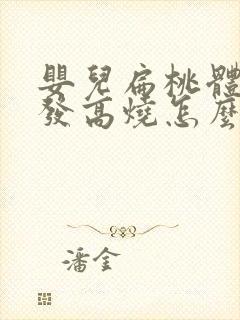 嬰兒扁桃體
發高燒怎麼
潘金